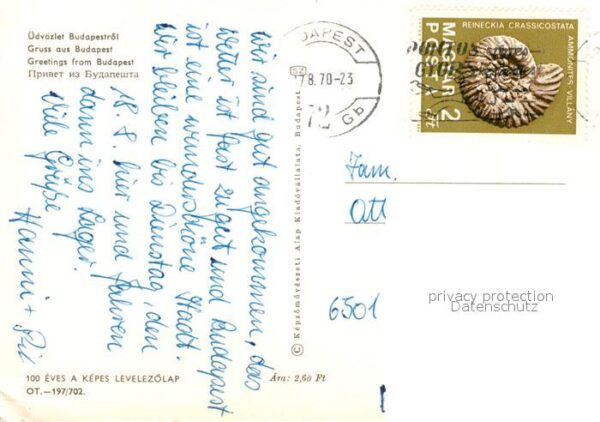 Üdvözlet Budapestről
Gruss aus Budapest
Greetings from Budapest
Привет из Будапешта
wir sind gut angekommen, das
Wetter ist fast zu gut und Budapest
ist eine wunderschöne Stadt.
Wir bleiben bis Dienstag, den
18.8. hier und fahren
dann ins Lager.
Viele Grüße
Hanni +
100 ÉVES A KÉPES LEVELEZŐLAP
OT.—197/702.
Ára: 2,60 Ft
© Képzőművészeti Alap Kiadóvállalata, Budapest
BUDAPEST
70-23
72
REINECKIA CRASSICOSTATA
AMMONITES VILLÁNY
MAGYAR
POSTA
2 Ft
PONTOS
Fam.
Ott
6501
privacy protection
Datenschutz